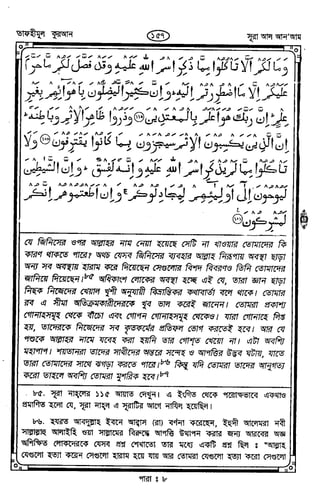 তাফহীমুল কুরআন
১৫৭
সূরা আল আন'আম
وَمَا لَكُمْ أَلَّا تَأْكُلُوا مِمَّا ذُكِرَ اسْمُ اللهِ عَلَيْهِ وَقَدْ فَصَّلَ لَكُمْ مَّا حَرَّمَ
عَلَيْكُمْ إِلَّا مَا اضْطُرِرْتُمْ إِلَيْهِ وَإِنَّ كَثِيرًا لَّيُضِلُّونَ بِأَهْوَائِهِمْ بِغَيْرِ
عِلْمٍ إِنَّ رَبَّكَ هُوَ أَعْلَمُ بِالْمُعْتَدِينَ ﴿١١٩﴾ وَذَرُوا ظَاهِرَ الْإِثْمِ وَبَاطِنَهُ
إِنَّ الَّذِينَ يَكْسِبُونَ الْإِثْمَ سَيُجْزَوْنَ بِمَا كَانُوا يَقْتَرِفُونَ ﴿١٢٠﴾ وَلَا
تَأْكُلُوا مِمَّا لَمْ يُذْكَرِ اسْمُ اللهِ عَلَيْهِ وَإِنَّهُ لَفِسْقٌ وَإِنَّ الشَّيٰطِينَ
لَيُوحُونَ إِلَى أَوْلِيَائِهِمْ لِيُجَادِلُوكُمْ وَإِنْ أَطَعْتُمُوهُمْ إِنَّكُمْ
لَمُشْرِكُونَ ﴿١٢١﴾
যে জিনিসের ওপর আল্লাহর নাম নেয়া হয়েছে সেটি না খাওয়ার তোমাদের কি
কারণ থাকতে পারে? অথচ যেসব জিনিসের ব্যবহার আল্লাহ নিরূপায় অবস্থা ছাড়া
অন্য সব অবস্থায় হারাম করে দিয়েছেন সেগুলোর বিশদ বিবরণও তিনি তোমাদের
জানিয়ে দিয়েছেন।৮৫ অধিকাংশ লোকের অবস্থা হচ্ছে এই যে, তারা জ্ঞান ছাড়া
নিছক নিজেদের খেয়াল খুশী অনুযায়ী বিভ্রান্তিকর কথাবার্তা বলে থাকে। তোমার
রব এ সীমা অতিক্রমকারীদেরকে খুব ভাল করেই জানেন। তোমরা প্রকাশ্য
গোনাহসমূহ থেকে বাঁচো এবং গোপন গোনাহসমূহ থেকেও। যারা গোনাহে লিপ্ত
হয়, তাদেরকে নিজেদের সব কৃতকর্মের প্রতিফল ভোগ করতেই হবে। আর যে
পশুকে আল্লাহর নামে যবেহ করা হয়নি তার গোশ্ত খেয়ো না। এটা অবশ্যি
মহাপাপ। শয়তানরা তাদের সাথীদের অন্তরে সন্দেহ ও আপত্তির উদ্ভব ঘটায়, যাতে
তারা তোমাদের সাথে ঝগড়া করতে পারে।৮৬ কিন্তু যদি তোমরা তাদের আনুগত্য
করো তাহলে অবশ্যি তোমরা মুশরিক হবে।৮৭
৮৫. সূরা নাহ্‌লের ১১৫ আয়াত দেখুন। এ ইংগিত থেকে পরোক্ষভাবে একথাও
প্রমাণিত হলো যে, সূরা নাহ্‌ল এ সূরাটির আগে নাযিল হয়েছিল।
৮৬. হযরত আবদুল্লাহ ইবনে আব্বাস (রা) বর্ণনা করেছেন, ইহুদী আলেমরা নবী
সাল্লাল্লাহু আলাইহি ওয়া সাল্লামের বিরুদ্ধে আপত্তি উত্থাপন করার জন্য আরবের অজ্ঞ
অশিক্ষিত লোকদেরকে যেসব প্রশ্ন শেখাতো তার মধ্যে একটি প্রশ্ন ছিল ঃ "আল্লাহ
যেগুলো হত্যা করেন সেগুলো হারাম হয়ে যায় আর তোমরা যেগুলো হত্যা করো সেগুলো
পারা ঃ ৮